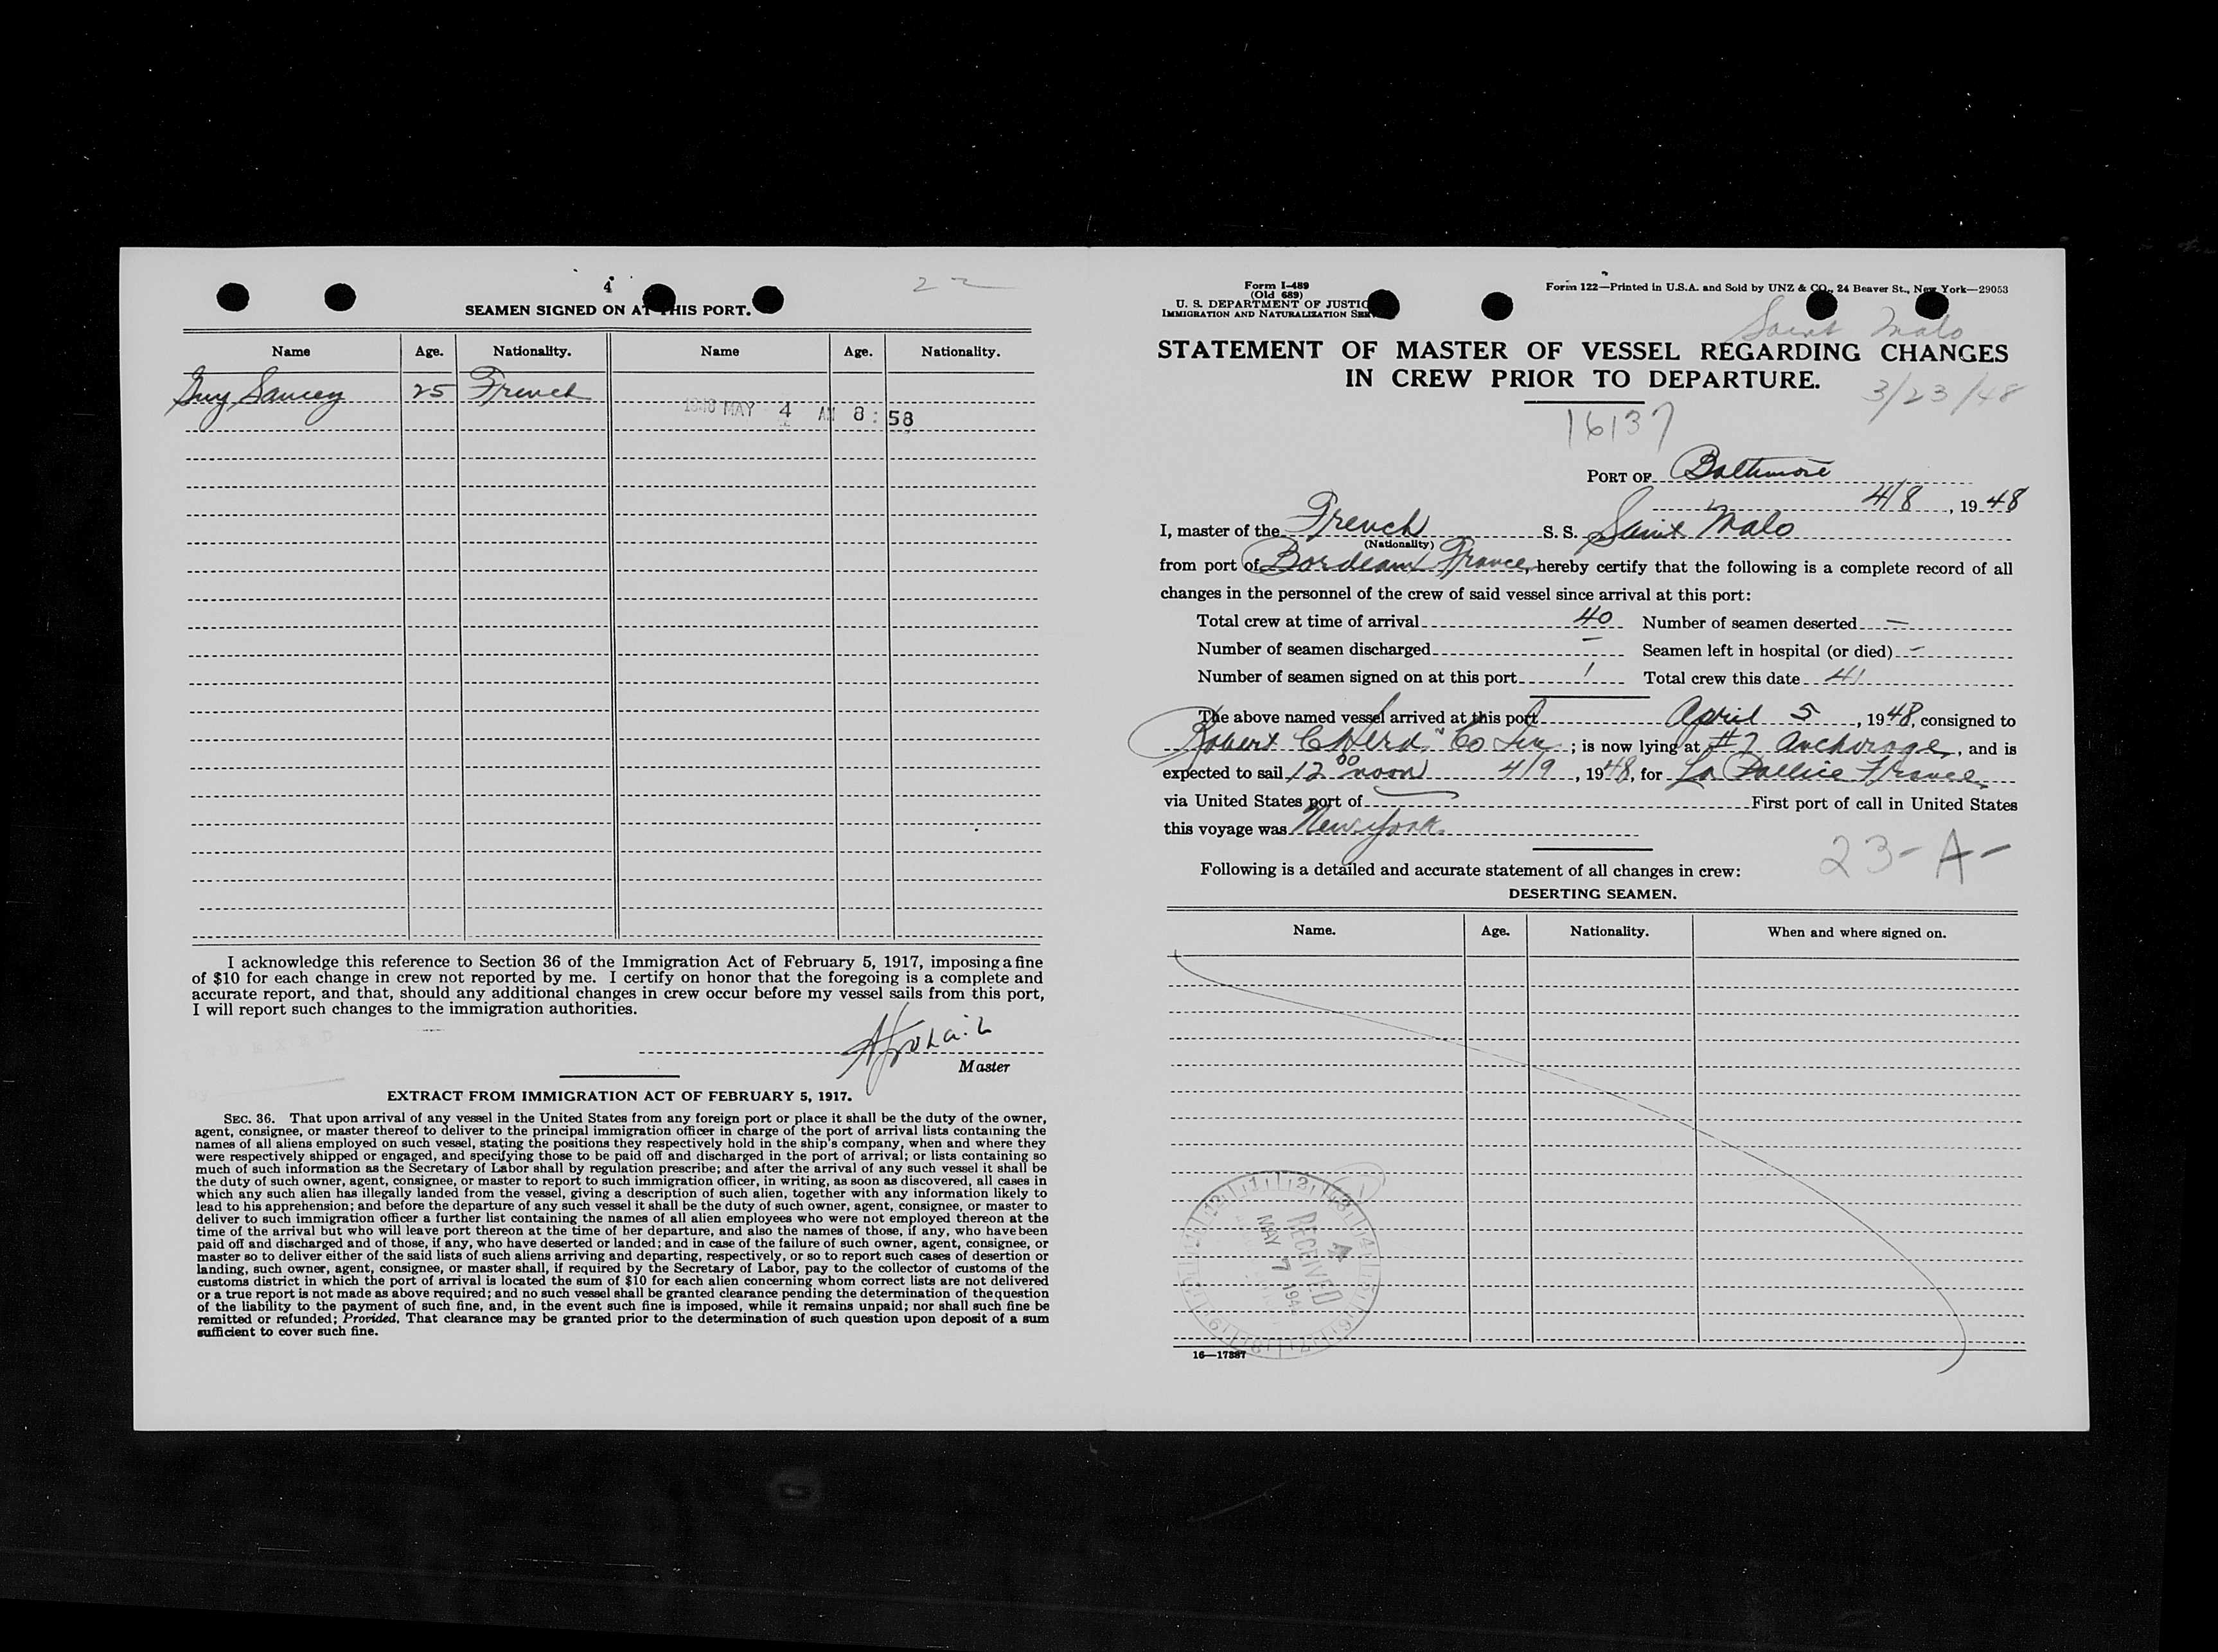 4
22
SEAMEN SIGNED ON AT THIS PORT.
Name Age. Nationality. Name Age. Nationality.
Guy Saucey 25 French
1948 MAY 4 AM 8:58
I acknowledge this reference to Section 36 of the Immigration Act of February 5, 1917, imposing a fine
of $10 for each change in crew not reported by me. I certify on honor that the foregoing is a complete and
accurate report, and that, should any additional changes in crew occur before my vessel sails from this port,
I will report such changes to the immigration authorities.
Master
EXTRACT FROM IMMIGRATION ACT OF FEBRUARY 5, 1917.
SEC. 36. That upon arrival of any vessel in the United States from any foreign port or place it shall be the duty of the owner,
agent, consignee, or master thereof to deliver to the principal immigration officer in charge of the port of arrival lists containing the
names of all aliens employed on such vessel, stating the positions they respectively hold in the ship's company, when and where they
were respectively shipped or engaged, and specifying those to be paid off and discharged in the port of arrival; or lists containing so
much of such information as the Secretary of Labor shall by regulation prescribe; and after the arrival of any such vessel it shall be
the duty of such owner, agent, consignee, or master to report to such immigration officer, in writing, as soon as discovered, all cases in
which any such alien has illegally landed from the vessel, giving a description of such alien, together with any information likely to
lead to his apprehension; and before the departure of any such vessel it shall be the duty of such owner, agent, consignee, or master to
deliver to such immigration officer a further list containing the names of all alien employees who were not employed thereon at the
time of the arrival but who will leave port thereon at the time of her departure, and also the names of those, if any, who have been
paid off and discharged and of those, if any, who have deserted or landed; and in case of the failure of such owner, agent, consignee, or
master so to deliver either of the said lists of such aliens arriving and departing, respectively, or so to report such cases of desertion or
landing, such owner, agent, consignee, or master shall, if required by the Secretary of Labor, pay to the collector of customs of the
customs district in which the port of arrival is located the sum of $10 for each alien concerning whom correct lists are not delivered
or a true report is not made as above required; and no such vessel shall be granted clearance pending the determination of the question
of the liability to the payment of such fine, and, in the event such fine is imposed, while it remains unpaid; nor shall such fine be
remitted or refunded; Provided, That clearance may be granted prior to the determination of such question upon deposit of a sum
sufficient to cover such fine.
Form I-489
(Old 689)
U. S. DEPARTMENT OF JUSTIC
IMMIGRATION AND NATURALIZATION SER
Form 122—Printed in U.S.A. and Sold by UNZ & CO., 24 Beaver St., New York—29053
Saint Malo
STATEMENT OF MASTER OF VESSEL REGARDING CHANGES
IN CREW PRIOR TO DEPARTURE.
3/23/48
16137
PORT OF Baltimore
4/8, 1948
I, master of the French S. S. Saint Malo
(Nationality)
from port of Bordeaux France, hereby certify that the following is a complete record of all
changes in the personnel of the crew of said vessel since arrival at this port:
Total crew at time of arrival 40 Number of seamen deserted —
Number of seamen discharged — Seamen left in hospital (or died) —
Number of seamen signed on at this port 1 Total crew this date 41
The above named vessel arrived at this port April 5, 1948, consigned to
Robert C Herd Co Inc; is now lying at #7 Anchorage, and is
expected to sail 12 00 noon 4/9, 1948, for La Pallice France
via United States port of — First port of call in United States
this voyage was New York
23-A-
Following is a detailed and accurate statement of all changes in crew:
DESERTING SEAMEN.
Name. Age. Nationality. When and where signed on.
RECEIVED
MAY 7 194
16—17387